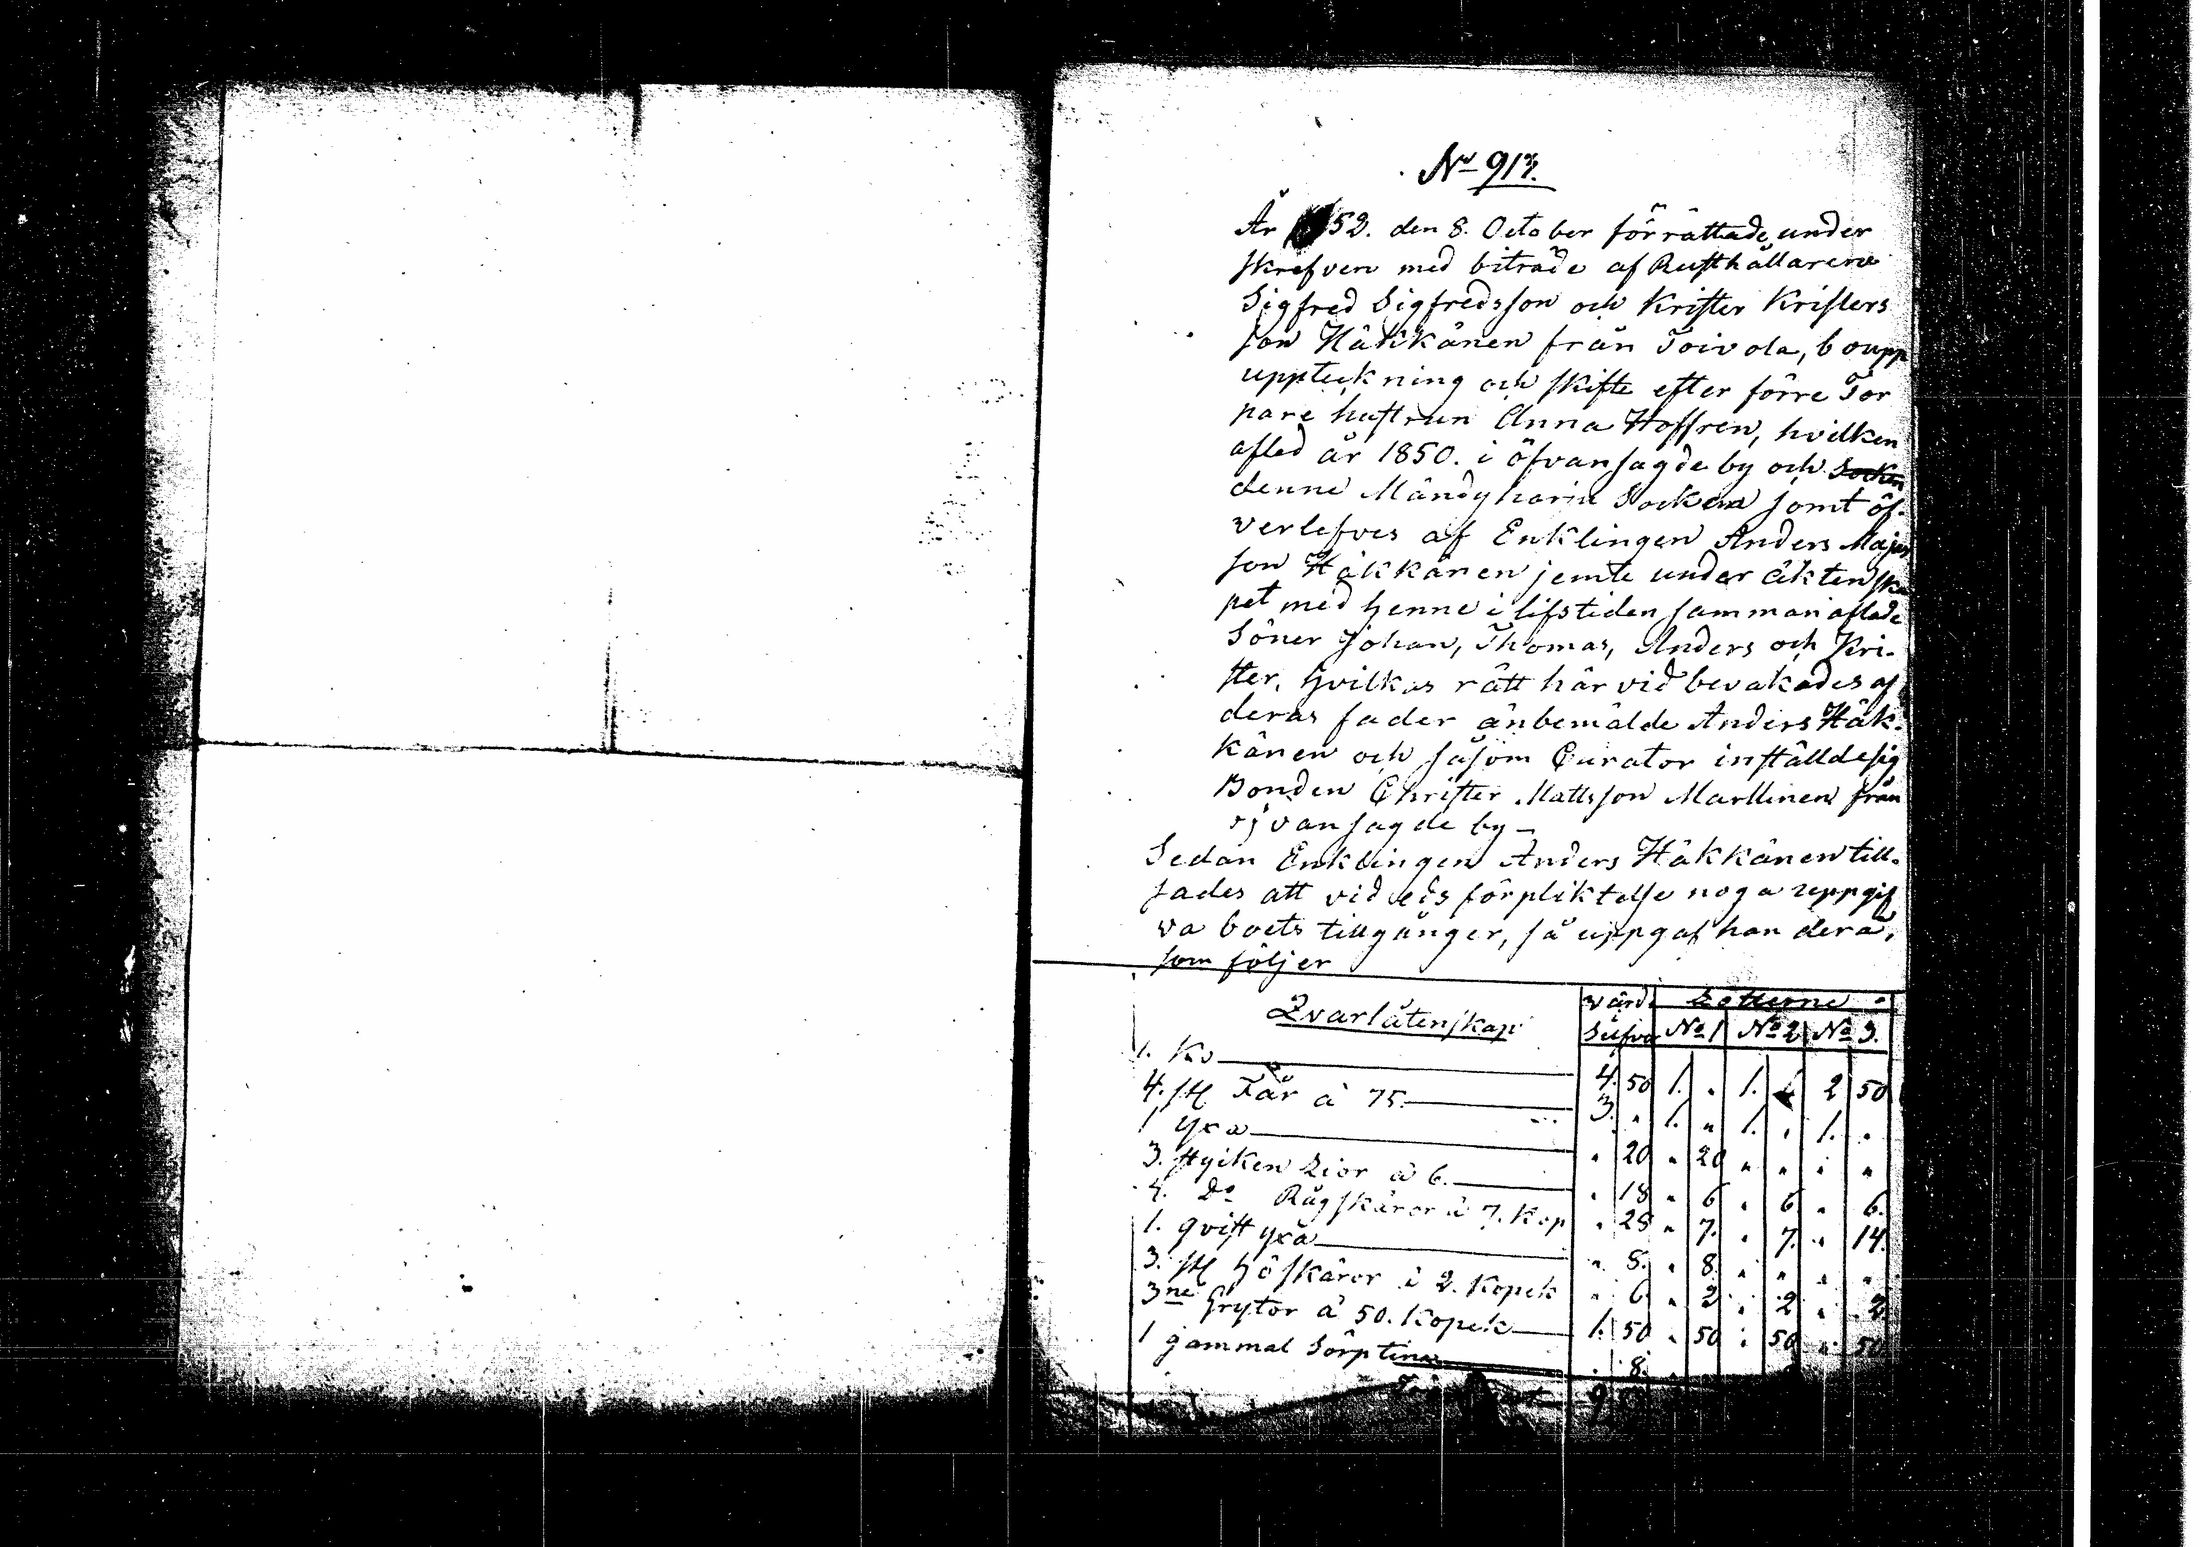 No 913.
År 1852. den 8. October förrättade under
skrefven med biträde af Rusthållarene
Sigfred Sigfredsson och Krister Kristers
son Häkkänen från Toivola, boupp
uppteckning och skifte efter förre Tor
pare hustrun Anna Hoffren, hvilken
afled år 1850. i öfvansagde by och Socken
denne Mändyharju Socken samt öf-
verlefves af Enklingen Anders Majus
son Häkkänen jemte under äktenska
pet med henne i lifstiden samman aflade
Söner Johan, Thomas, Anders och Kri-
ster, hvilkas rätt här vid bevakades af
deras fader ånbemälde Anders Häk-
känen och såsom Curator instäldesig
Bonden Christer Mattsson Marttinen från
öfvansagde by –
Sedan Enklingen Anders Häkkänen till-
sades att vid eds förpliktelse noga uppgif
va boets tillgånger, så uppgaf han dera,
som följer
Qvarlåtenskap värde Lotterne
Silfver No 1 No 2 No 3.
1. Ko 4. 50 1. " 1. 2 50
4. st Får à 75. 3. " 1. " 1. " 1. "
1 yxa " 20 " 20 " " " "
3. stycken Lior à 6. " 18 " 6 " 6 " 6.
4. Do Rågskäror à 7. Kop " 28 " 7. " 7. " 14.
1. qvist yxa " 8. " 8 " " " "
3. st höskäror à 2. Kopek " 6 " 2 " 2 " 2
3ne Grytor à 50. Kopek 1. 50 " 50 " 50 " 50
1 gammal Sörptina " 8.
9